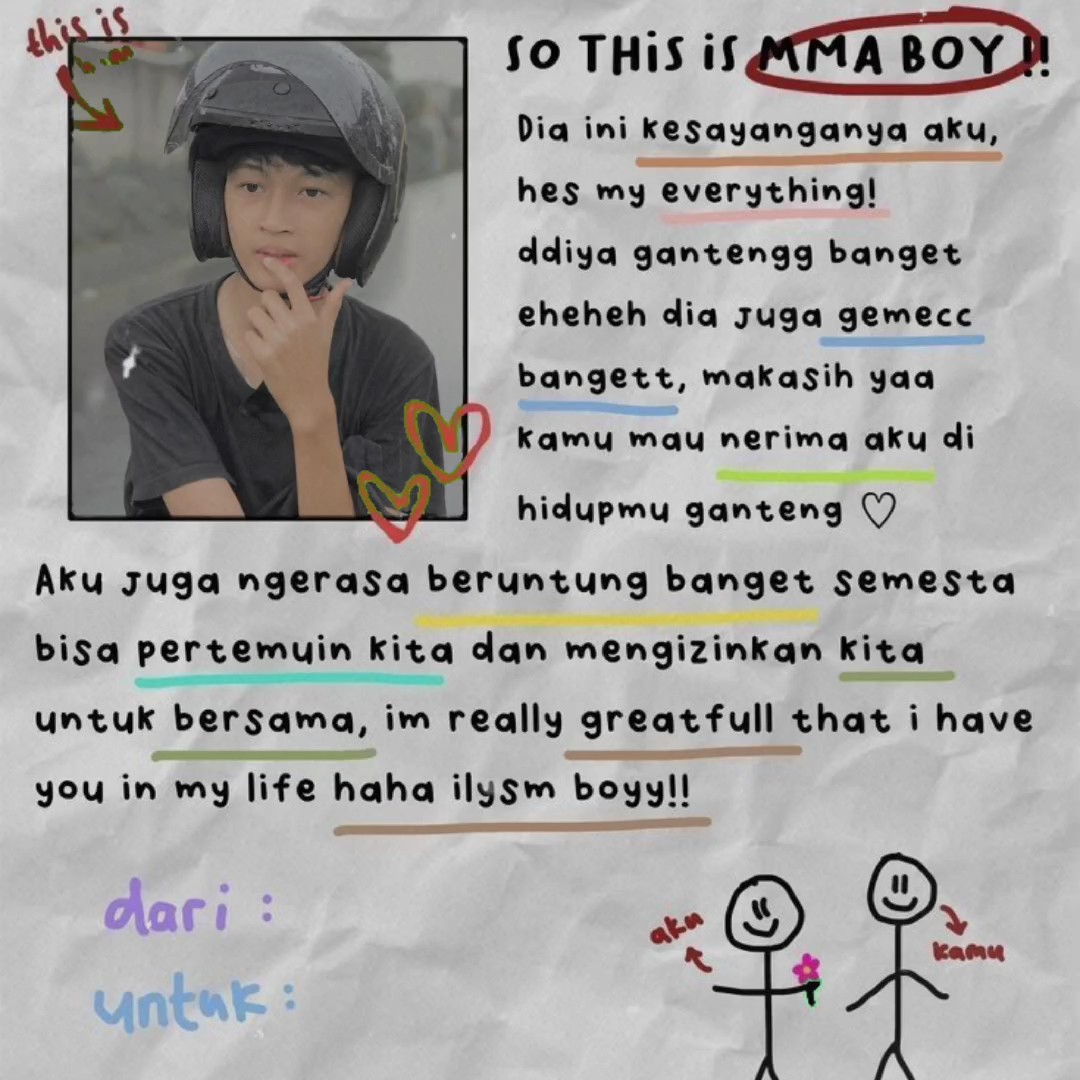 this is
him
SO THiS iS MMA BOY !!
Dia ini kesayanganya aku,
hes my everything!
ddiya gantengg banget
eheheh dia juga gemecc
bangett, makasih yaa
kamu mau nerima aku di
hidupmu ganteng ♡
Aku juga ngerasa beruntung banget semesta
bisa pertemuin kita dan mengizinkan kita
untuk bersama, im really greatfull that i have
you in my life haha ilysm boyy!!
dari :
untuk :
aku
kamu